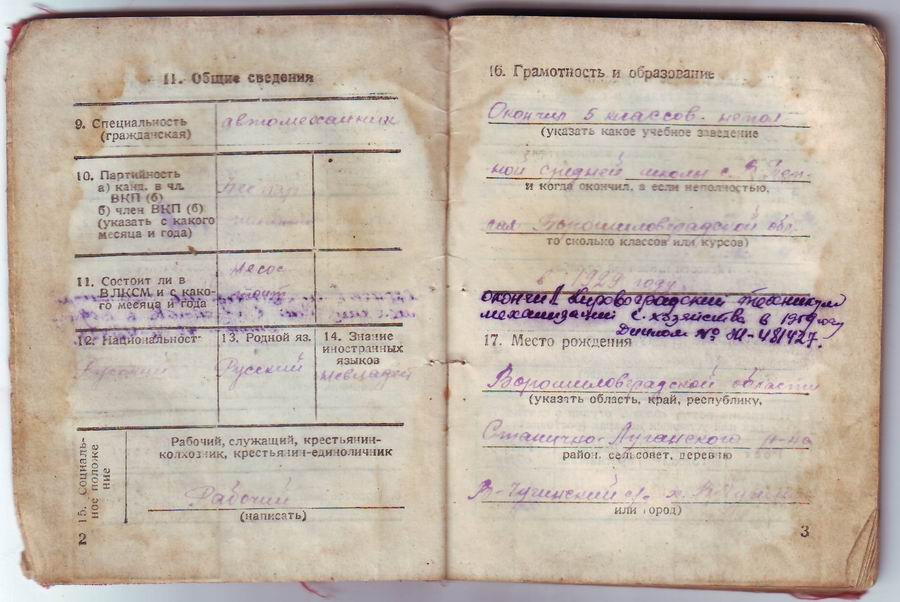 11. Общие сведения
9. Специальность
(гражданская)
автомеханик
10. Партийность
а) канд. в чл.
ВКП (б)
б) член ВКП (б)
(указать с какого
месяца и года)
11. Состоит ли в
ВЛКСМ и с како-
го месяца и года
12. Национальност
13. Родной яз.
Русский
14. Знание
иностранных
языков
15. Социаль-
ное положе
ние
Рабочий, служащий, крестьянин-
колхозник, крестьянин-единоличник
Рабочий
(написать)
2
16. Грамотность и образование
Окончил 5 классов непол
(указать какое учебное заведение
ной средней школы с.
и когда окончил, а если неполностью,
Ворошиловградской обл.
то сколько классов или курсов)
в 1929 году
окончил Кировоградский техникум
механизации с-хозяйства в 1959 году
Диплом № 481427.
17. Место рождения
Ворошиловградской области
(указать область, край, республику,
Станично-Луганского р-на
район, сельсовет, деревню
или город)
3